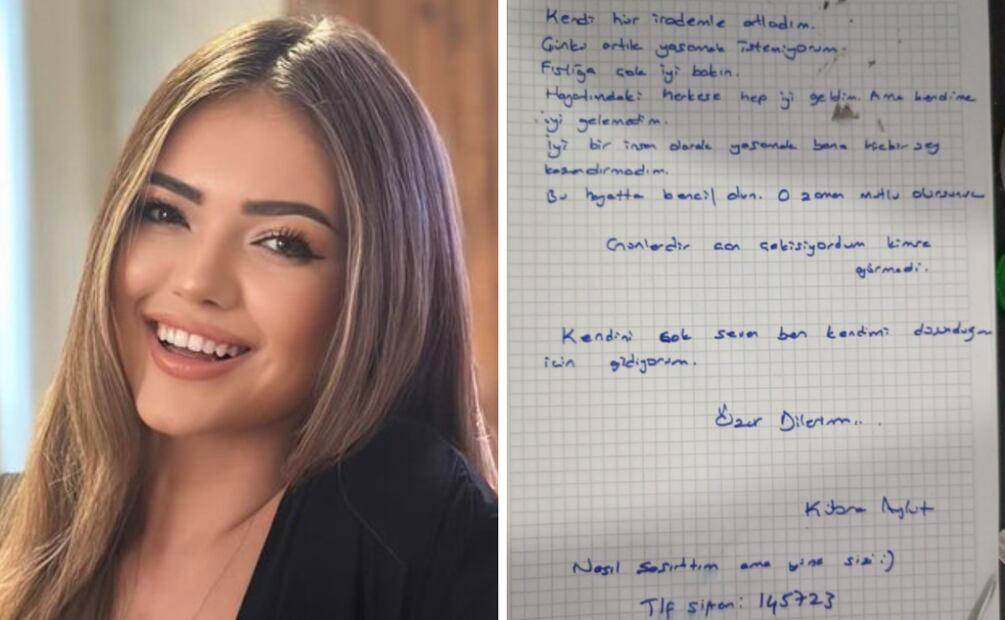 Kendi hür irademle atladım.
Çünkü artık yaşamak istemiyorum.
Fıstığa çok iyi bakın.
Hayatımdaki herkese hep iyi geldim. Ama kendime
iyi gelemedim.
İyi bir insan olarak yaşamak bana hiçbir şey
kazandırmadım.
Bu hayatta bencil olun. O zaman mutlu olursunuz
Günlerdir can çekişiyordum kimse
görmedi.
Kendini çok seven ben kendimi düşündüğüm
için gidiyorum.
Özür Dilerim...
Kübra Aylut
Nasıl şaşırttım ama yine sizi :)
Tlf şifrem: 145723